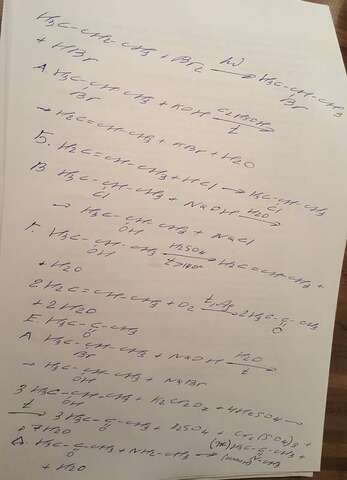 H₃C-CH₂-CH₃ + Br₂ —hν→ H₃C-CH-CH₃
Br
+ HBr
А. H₃C-CH-CH₃ + KOH —C₂H₅OH, t→
Br
→ H₂C=CH-CH₃ + KBr + H₂O
Б. H₂C=CH-CH₃ + HCl → H₃C-CH-CH₃
Cl
В. H₃C-CH-CH₃ + NaOH —H₂O→
Cl
→ H₃C-CH-CH₃ + NaCl
OH
Г. H₃C-CH-CH₃ —H₂SO₄, t>140°→ H₂C=CH-CH₃
OH
+ H₂O
2H₂C=CH-CH₃ + O₂ —t, Ag→ 2H₃C-C-CH₃
O
+ 2H₂O
Е. H₃C-C-CH₃
O
А. H₃C-CH-CH₃ + NaOH —H₂O, t→
Br
→ H₃C-CH-CH₃ + NaBr
OH
3 H₃C-CH-CH₃ + K₂Cr₂O₇ + 4H₂SO₄ →
OH
—t→ 3H₃C-C-CH₃ + K₂SO₄ + Cr₂(SO₄)₃ +
O
+ 7H₂O
Д. H₃C-C-CH₃ + NH₂-CH₃ →
O
+ H₂O